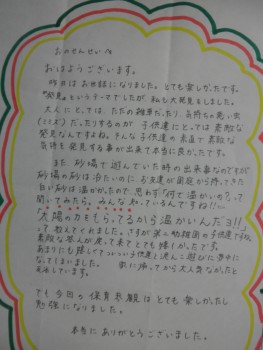 おのせんせいへ
おはようございます。
昨日はお世話になりました。とても楽しかったです。
"発見"というテーマでしたが、私も大発見をしました。
大人にとっては、ただの雑草だったり、気持ち悪い虫
(ミミズ)だったりするのが子供達にとっては素敵な
発見なんですよね。そんな子供達の素直で素敵な
気持を発見する事が出来て本当に良かったです。
また、砂場で遊んでいた時の出来事なのですが
砂場の砂は冷たいのに、お友達が園庭から持ってきた
白い砂は温かかったので思わず「何で温かいの?」って
聞いてみたら、みんな知っているんですね!!
「太陽の力をもらってるから温かいんだョ!!」
って教えてくれました。さすが第一幼稚園の子供達ですね。
素敵な答えが戻って来てとても嬉しかったです。
あまりにも勝していい子供と泥んこ遊びに夢中に
なってしまいました。家に帰ってから大人気なかったと
反省しています。
でも今日の保育参観はとても楽しかったし
勉強になりました。
本当にありがとうございました。